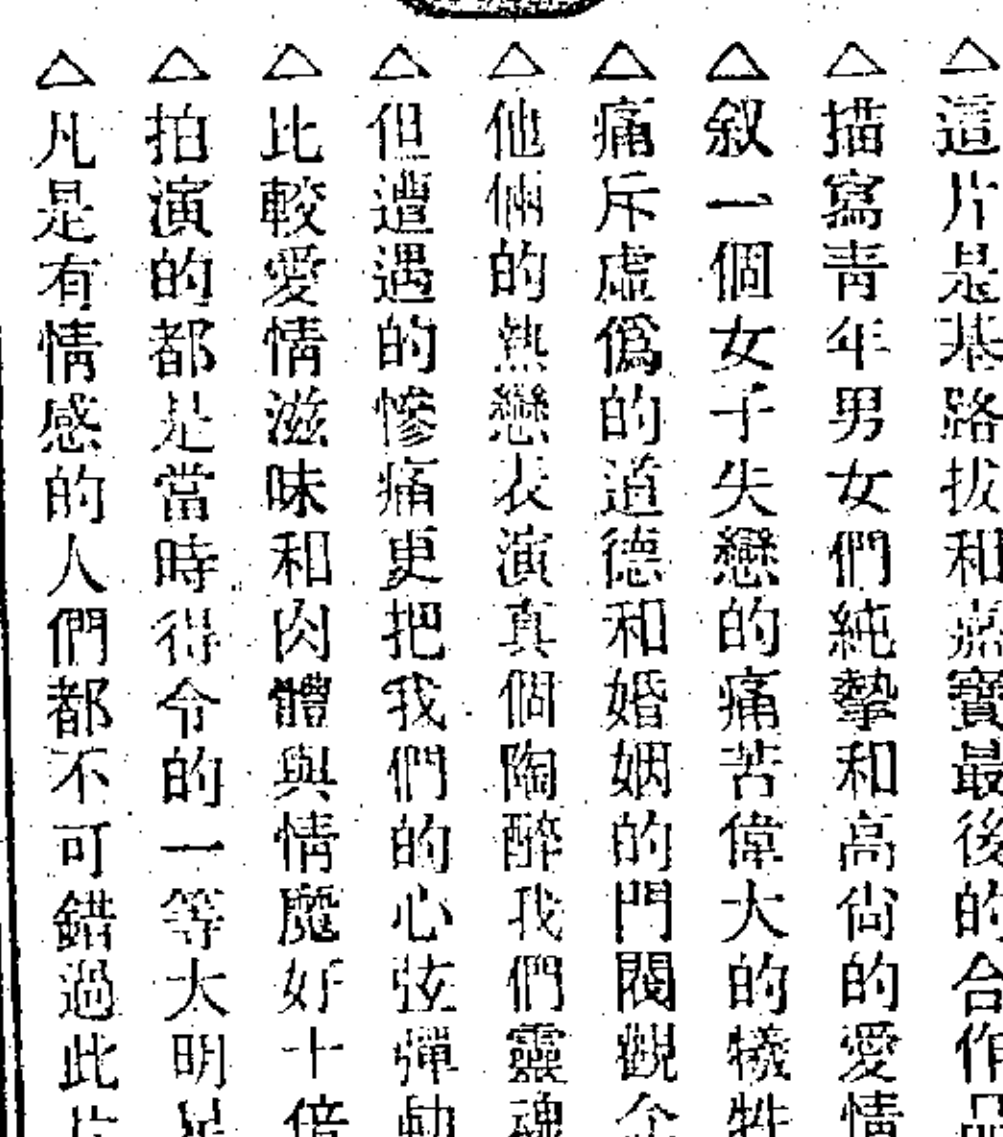 △這片是基路拔和嘉寶最後的合作品
△描寫靑年男女們純摯和高尙的愛情
△叙一個女子失戀的痛苦偉大的犧牲
△痛斥虛僞的道德和婚姻的門閥觀念
△他倆的熱戀表演真個陶醉我們靈魂
△但遭遇的慘痛更把我們的心弦彈動
△比較愛情滋味和肉體與情魔好十倍
△拍演的都是當時得令的一等大明星
△凡是有情感的人們都不可錯過此片